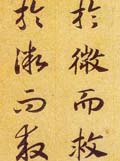 於微而救
於微而救